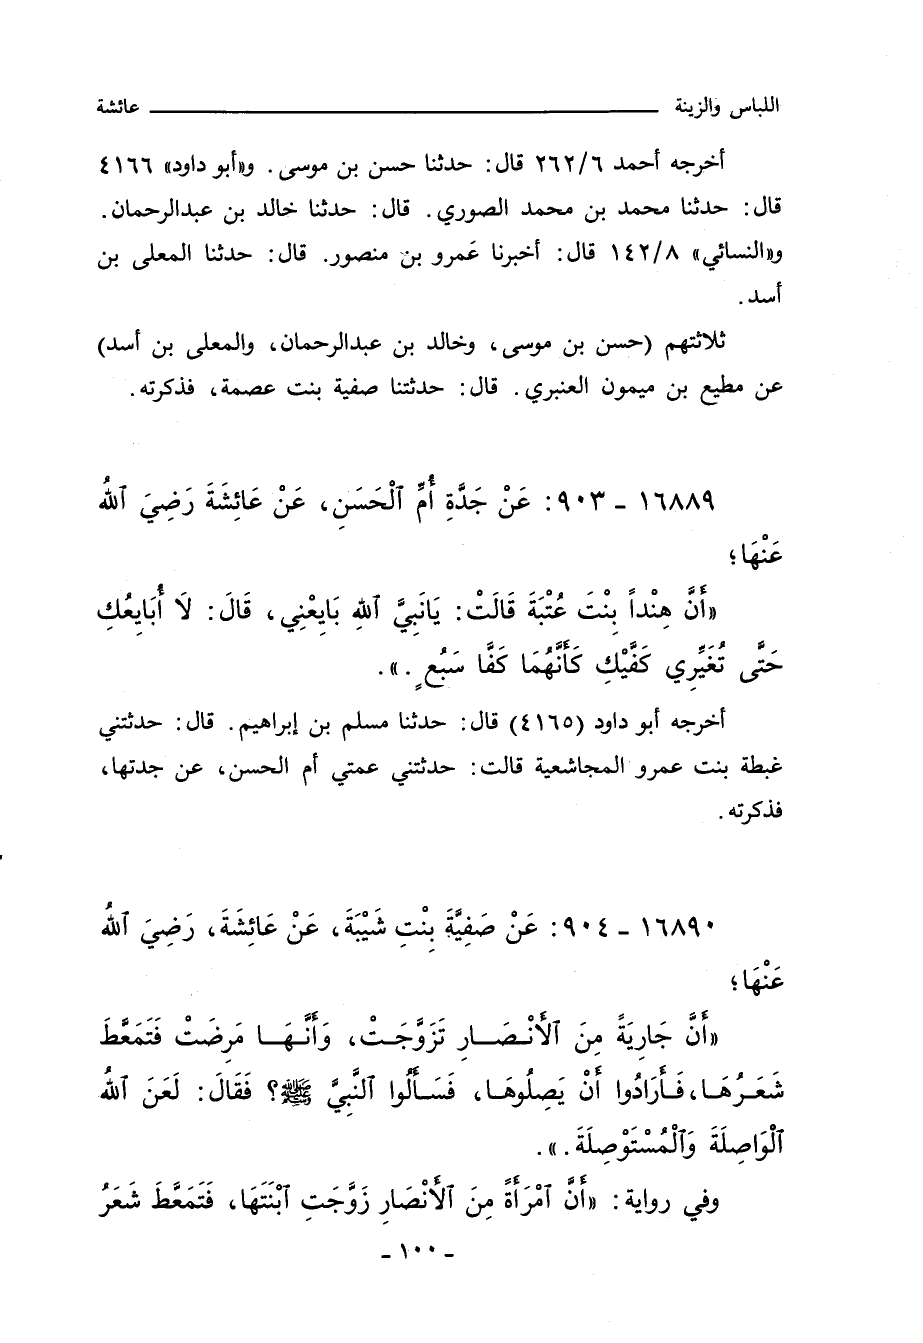 اللباس والزينة ــــــــــــــــــــــــــــــــــــــــ عائشة
أخرجه أحمد ٢٦٢/٦ قال: حدثنا حسن بن موسى. و«أبو داود» ٤١٦٦
قال: حدثنا محمد بن محمد الصوري. قال: حدثنا خالد بن عبدالرحمان.
و«النسائي» ١٤٢/٨ قال: أخبرنا عَمرو بن منصور. قال: حدثنا المعلى بن
أسد.
ثلاثتهم (حسن بن موسى، وخالد بن عبدالرحمان، والمعلى بن أسد)
عن مطيع بن ميمون العنبري. قال: حدثتنا صفية بنت عصمة، فذكرته.
١٦٨٨٩ - ٩٠٣: عَنْ جَدَّةِ أُمِّ ٱلْحَسَنِ، عَنْ عَائِشَةَ رَضِيَ ٱللهُ
عَنْهَا؛
«أَنَّ هِنْداً بِنْتَ عُتْبَةَ قَالَتْ: يَانَبِيَّ ٱللهِ بَايِعْنِي، قَالَ: لَا أُبَايِعُكِ
حَتَّى تُغَيِّرِي كَفَّيْكِ كَأَنَّهُمَا كَفَّا سَبُعٍ.».
أخرجه أبو داود (٤١٦٥) قال: حدثنا مسلم بن إبراهيم. قال: حدثتني
غبطة بنت عمرو المجاشعية قالت: حدثتني عمتي أم الحسن، عن جدتها،
فذكرته.
١٦٨٩٠ - ٩٠٤: عَنْ صَفِيَّةَ بِنْتِ شَيْبَةَ، عَنْ عَائِشَةَ، رَضِيَ ٱللهُ
عَنْهَا؛
«أَنَّ جَارِيَةً مِنَ ٱلْأَنْصَارِ تَزَوَّجَتْ، وَأَنَّهَا مَرِضَتْ فَتَمَعَّطَ
شَعَرُهَا، فَأَرَادُوا أَنْ يَصِلُوهَا، فَسَأَلُوا ٱلنَّبِيَّ ﷺ؟ فَقَالَ: لَعَنَ ٱللهُ
ٱلْوَاصِلَةَ وَٱلْمُسْتَوْصِلَةَ.».
وفي رواية: «أَنَّ ٱمْرَأَةً مِنَ ٱلْأَنْصَارِ زَوَّجَتِ ٱبْنَتَهَا، فَتَمَعَّطَ شَعَرُ
- ١٠٠ -